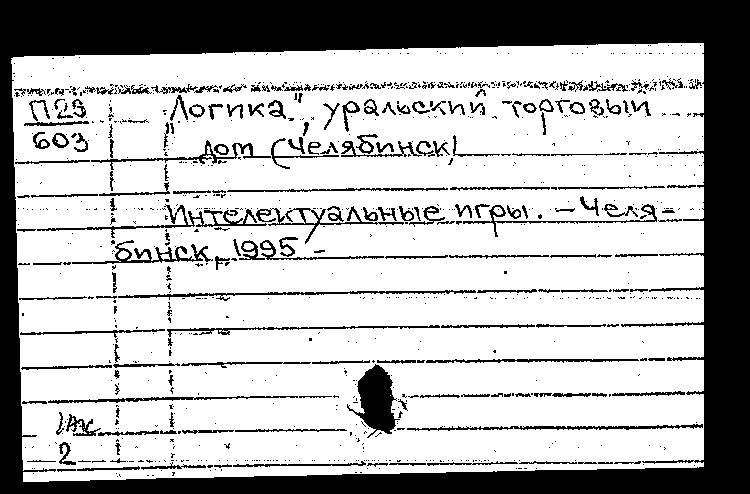 П29
603
"Логика", уральский торговый
дом (Челябинск)
Интелектуальные игры. – Челя-
бинск, 1995 –
2